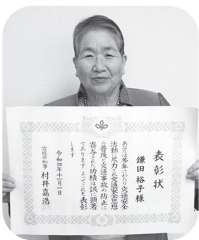 表彰状
鎌田裕子様
あなたは多年にわたり交通安全
活動に尽力され交通安全思想
の普及と交通事故の防止に
寄与された功績は誠に顕著
であります よってここに表彰
します
令和四年十二月一日
宮城県知事 村井嘉浩